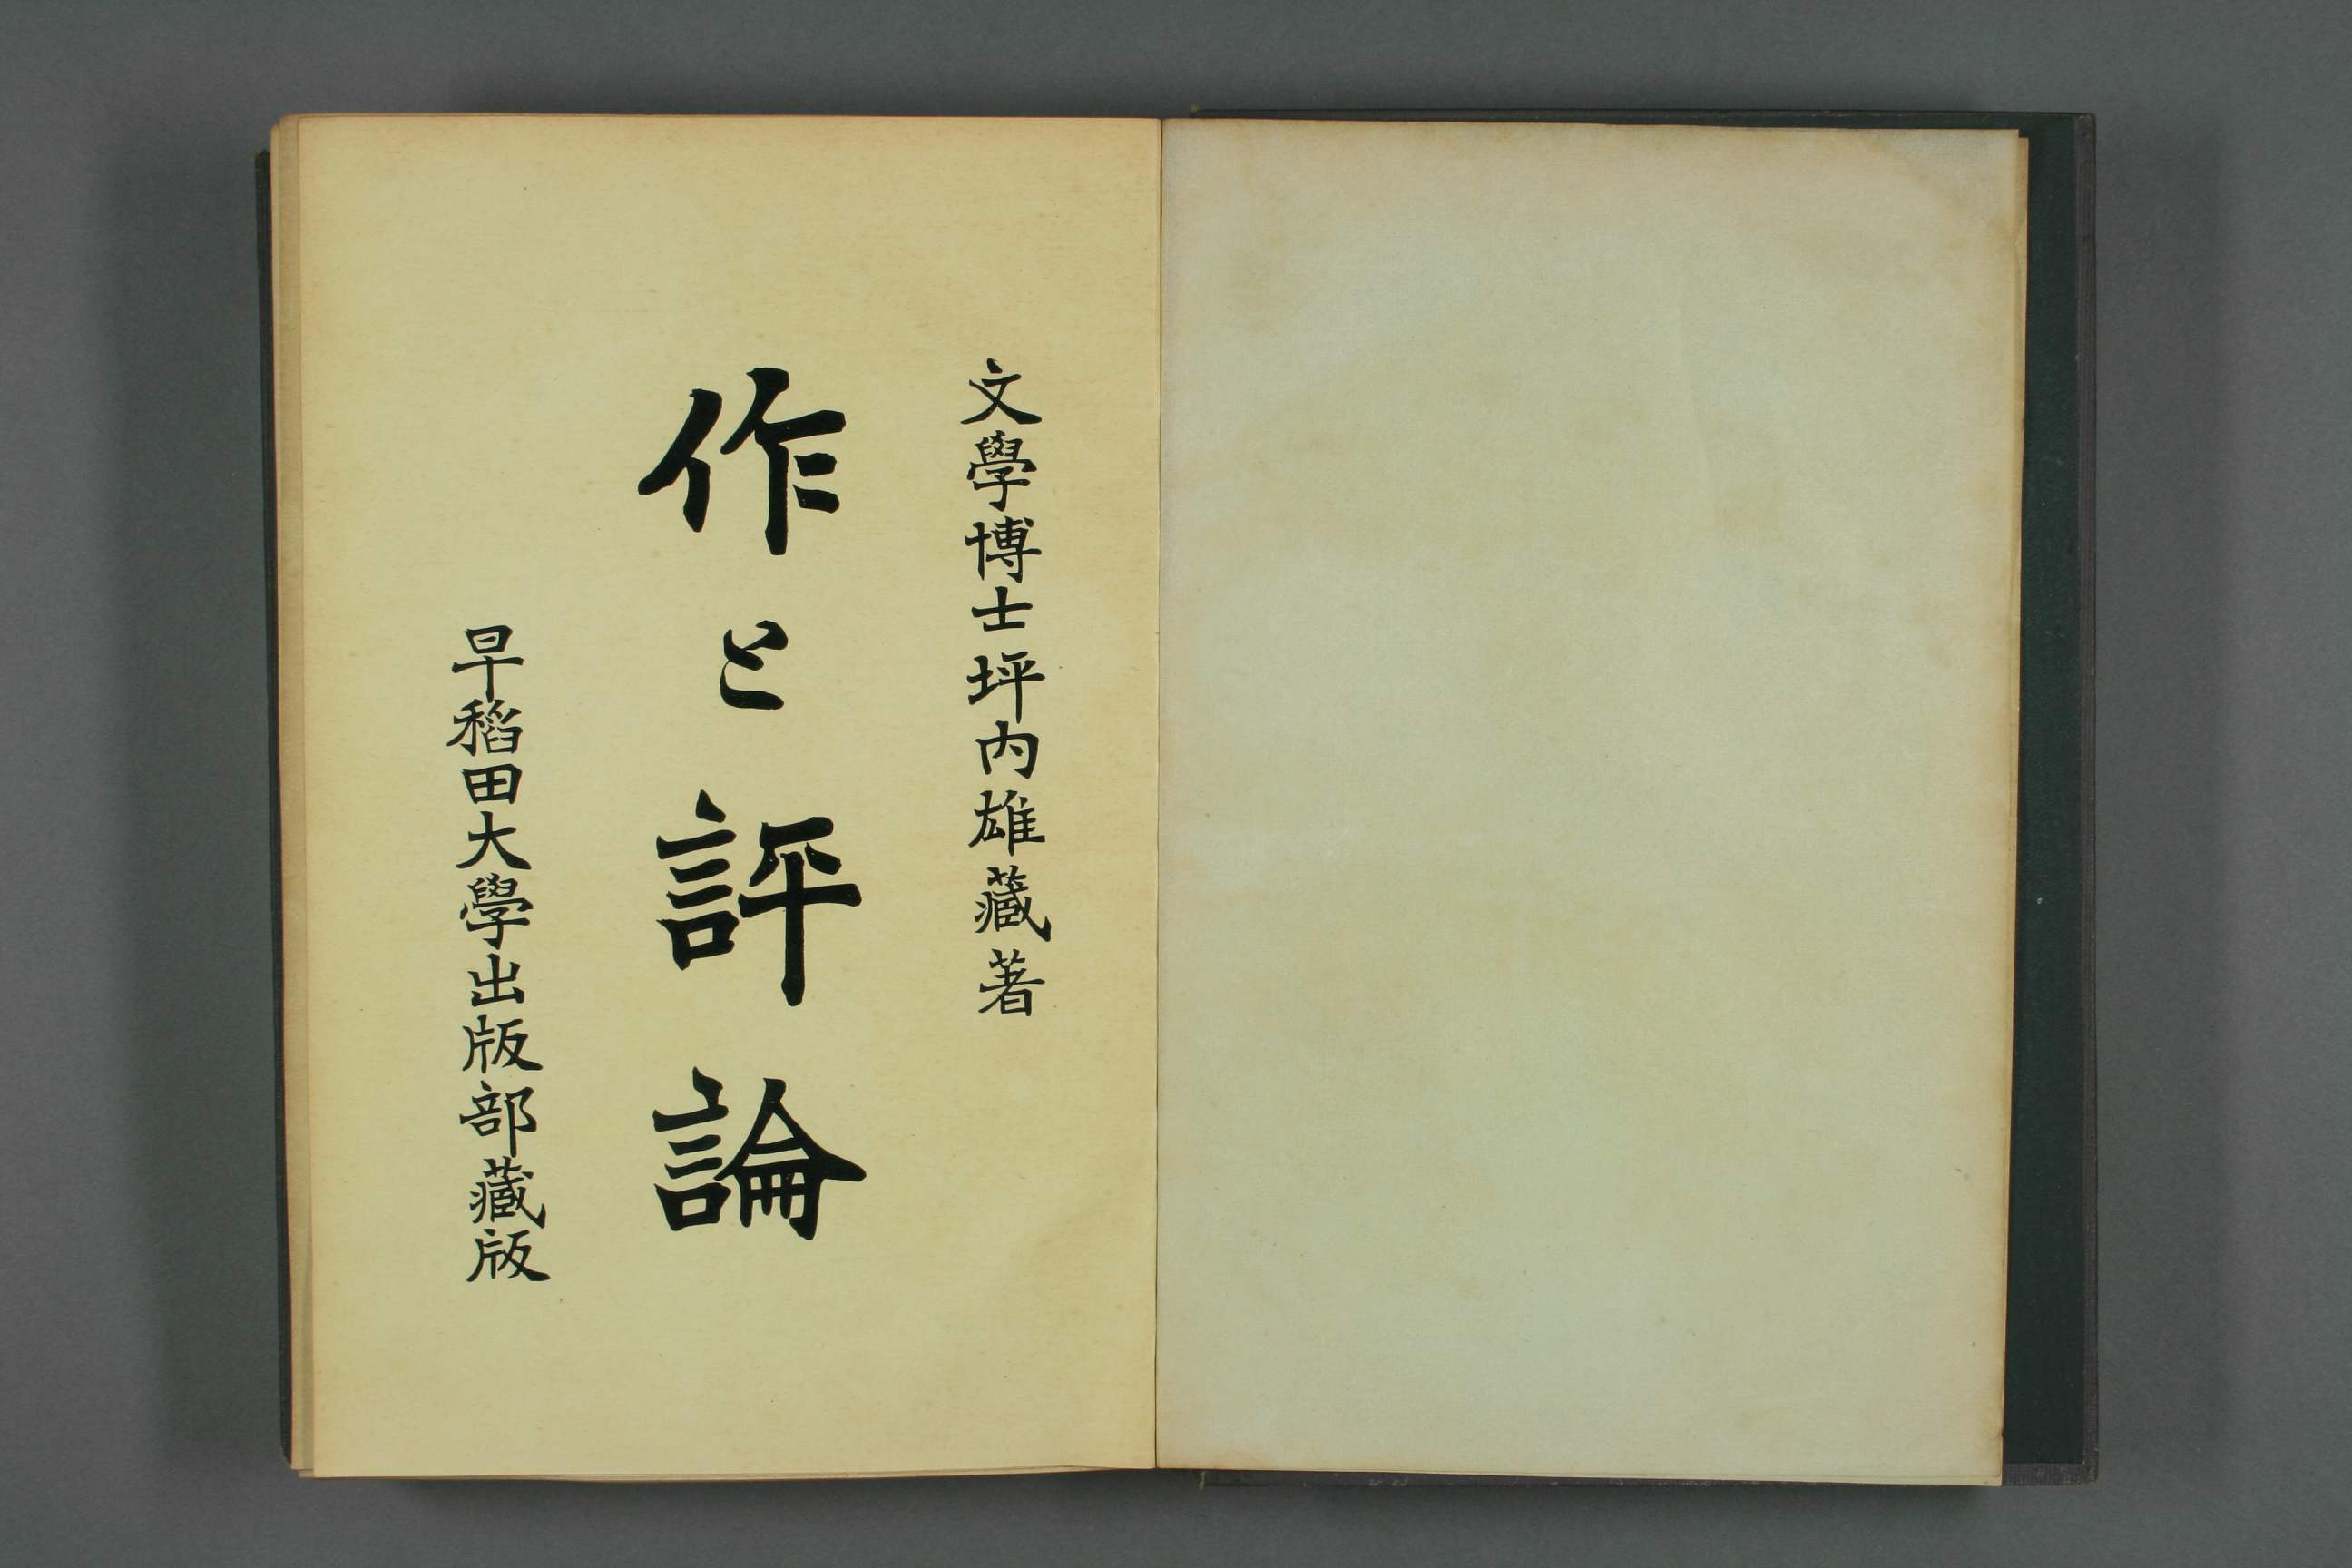 文學博士坪内雄藏著
作と評論
早稲田大學出版部藏版